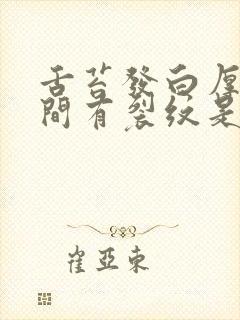 舌苔發白厚
間有裂紋是
崔亞東